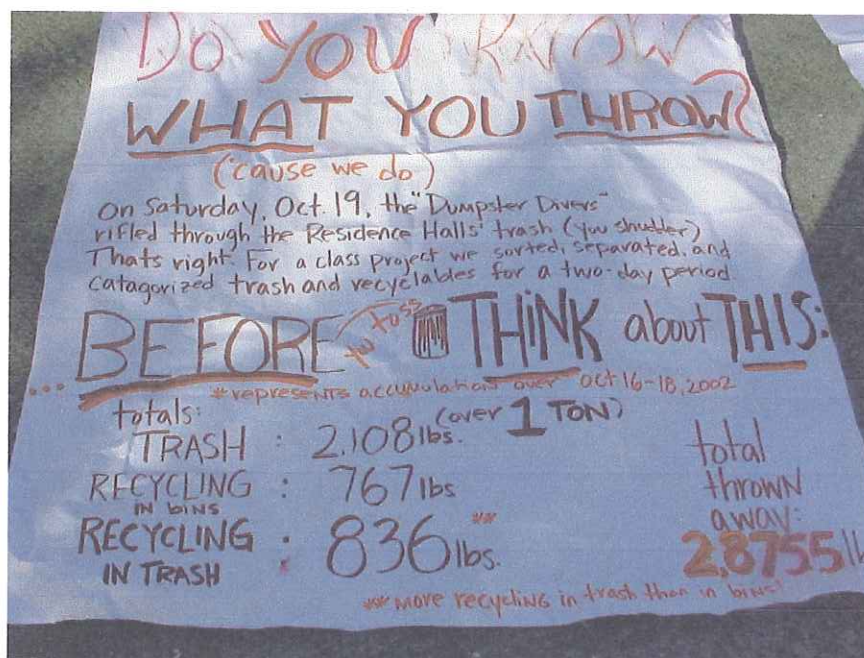 DO YOU KNOW
WHAT YOU THROW?
('cause we do)
On Saturday, Oct. 19, the "Dumpster Divers"
rifled through the Residence Halls' trash (you shudder)
Thats right. For a class project we sorted, separated, and
catagorized trash and recyclables for a two-day period
... BEFORE you toss THINK about THIS:
*represents accumulation over Oct 16-18, 2002
totals:
TRASH : 2,108 lbs. (over 1 TON)
RECYCLING IN BINS : 767 lbs
RECYCLING IN TRASH : 836 lbs. **
total
thrown
away:
2,875.5 lb
** more recycling in trash than in bins!